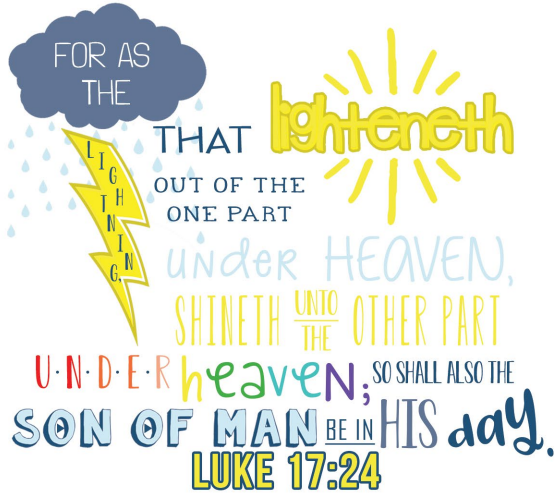 FOR AS
THE
LIGHTNING,
THAT lighteneth
OUT OF THE
ONE PART
under HEAVEN,
SHINETH UNTO THE OTHER PART
U·N·D·E·R heaveN; SO SHALL ALSO THE
SON OF MAN BE IN HIS day.
LUKE 17:24